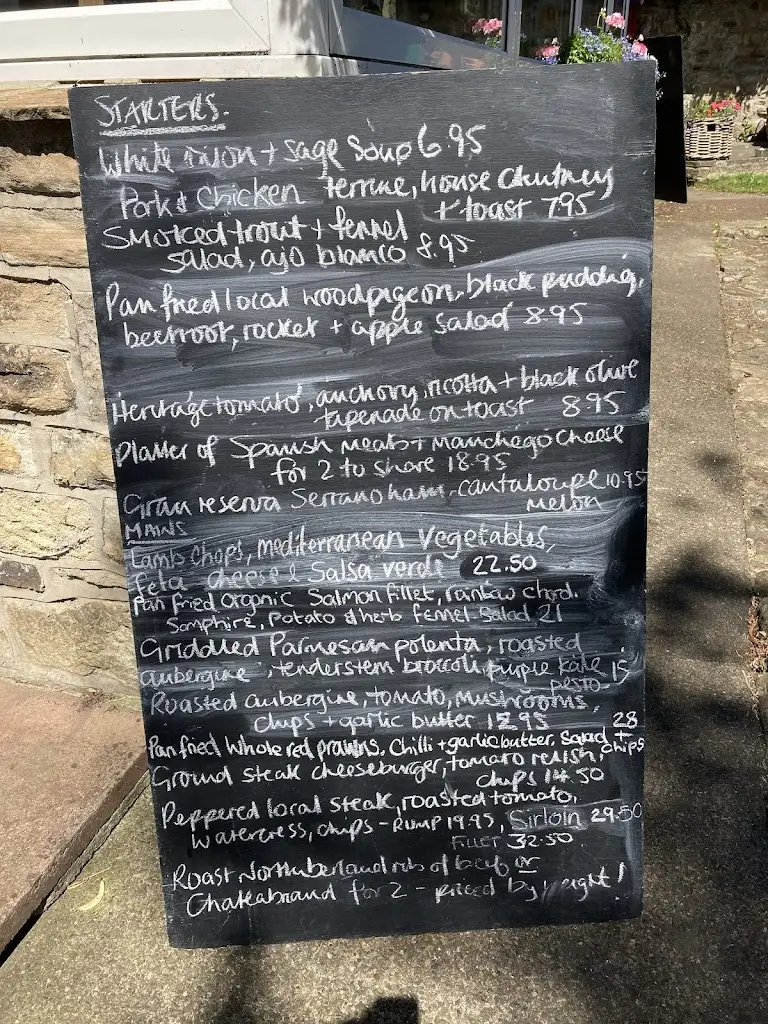 STARTERS.
White onion + sage Soup 6.95
Pork & Chicken terrine, house chutney
+ toast 7.95
Smoked trout + fennel
salad, ajo blanco 8.95
Pan fried local woodpigeon, black pudding,
beetroot, rocket + apple salad 8.95
Heritage tomato, anchovy, ricotta + black olive
tapenade on toast 8.95
Platter of Spanish meats + Manchego cheese
for 2 to share 18.95
Gran reserva Serrano ham, cantaloupe 10.95
melon
MAINS
Lamb Chops, mediterranean Vegetables,
feta cheese & Salsa verde 22.50
Pan fried Organic Salmon fillet, rainbow chard.
Samphire, potato & herb fennel salad 21
Griddled Parmesan polenta, roasted
aubergine, tenderstem broccoli, purple kale
pesto 15
Roasted aubergine, tomato, mushrooms,
chips + garlic butter 12.95
28
Pan fried Whole red prawns, Chilli + garlic butter, Salad + chips
Ground steak cheeseburger, tomato relish,
chips 14.50
Peppered local steak, roasted tomato,
Watercress, chips - RUMP 19.95, Sirloin 29.50
Fillet 32.50
Roast Northumberland rib of beef or
Chateabriand for 2 - priced by weight!